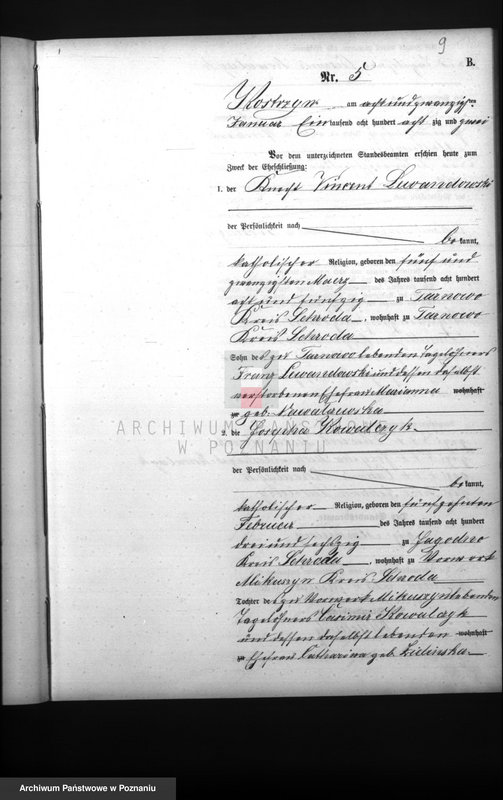 9
B.
Nr. 5
Kostrzyn am achtundzwanzigsten
Januar Ein tausend acht hundert acht zig und zwei
Vor dem unterzeichneten Standesbeamten erschien heute zum
Zweck der Eheschließung:
1. der Knecht Vincent Lewandowski
der Persönlichkeit nach
be kannt,
katholischer Religion, geboren den fünf und
zwanzigsten Maerz des Jahres tausend acht hundert
acht und fünfzig zu Tarnowo
Kreis Schroda, wohnhaft zu Tarnowo
Kreis Schroda
Sohn des zu Tarnowo lebenden Tagelöhners
Franz Lewandowski und dessen daselbst
verstorbenen Ehefrau Marianna wohnhaft
zu geb.
2. die Josepha Kowalczyk
der Persönlichkeit nach
be kannt,
katholischer Religion, geboren den fünfzehnten
Februar des Jahres tausend acht hundert
drei und sechszig zu Jagodno
Kreis Schroda, wohnhaft zu Vorwerk
Mikuszyn Kreis Schroda
Tochter des zu Vorwerk Mikuszyn lebenden
Tagelöhners Casimir Kowalczyk
und dessen daselbst lebenden wohnhaft
zu Ehefrau Catharina geb. Zielinska
ARCHIWUM PAŃSTWOWE
W POZNANIU
Archiwum Państwowe w Poznaniu